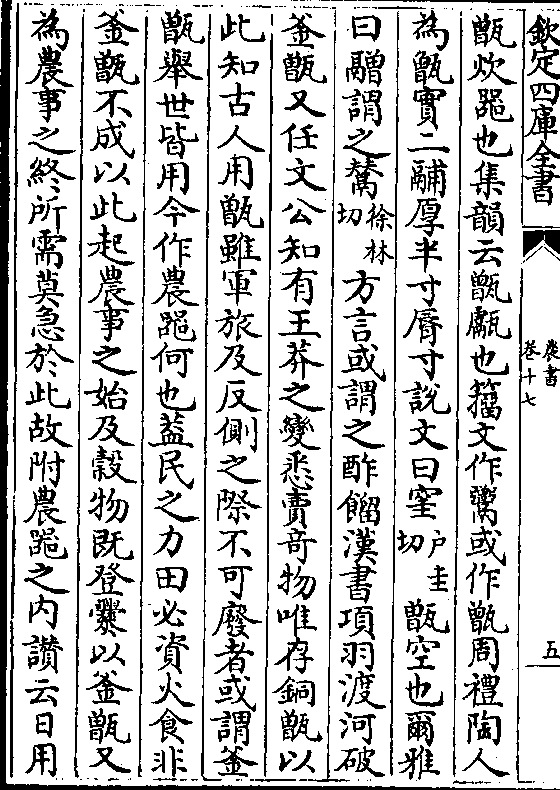 欽定四庫全書
農書
卷十七
五
甑炊器也集韻云甑甗也籀文作鬵或作甑周禮陶人
為甑實二鬴厚半寸脣寸說文曰窐戶圭切甑空也爾雅
曰䰝謂之鬵徐林切方言或謂之酢餾漢書項羽渡河破
釜甑又任文公知有王莽之變悉賣奇物唯存銅甑以
此知古人用甑雖軍旅及反側之際不可廢者或謂釜
甑舉世皆用今作農器何也葢民之力田必資火食非
釜甑不成以此起農事之始及穀物既登爨以釜甑又
為農事之終所需莫急於此故附農器之内讚云日用